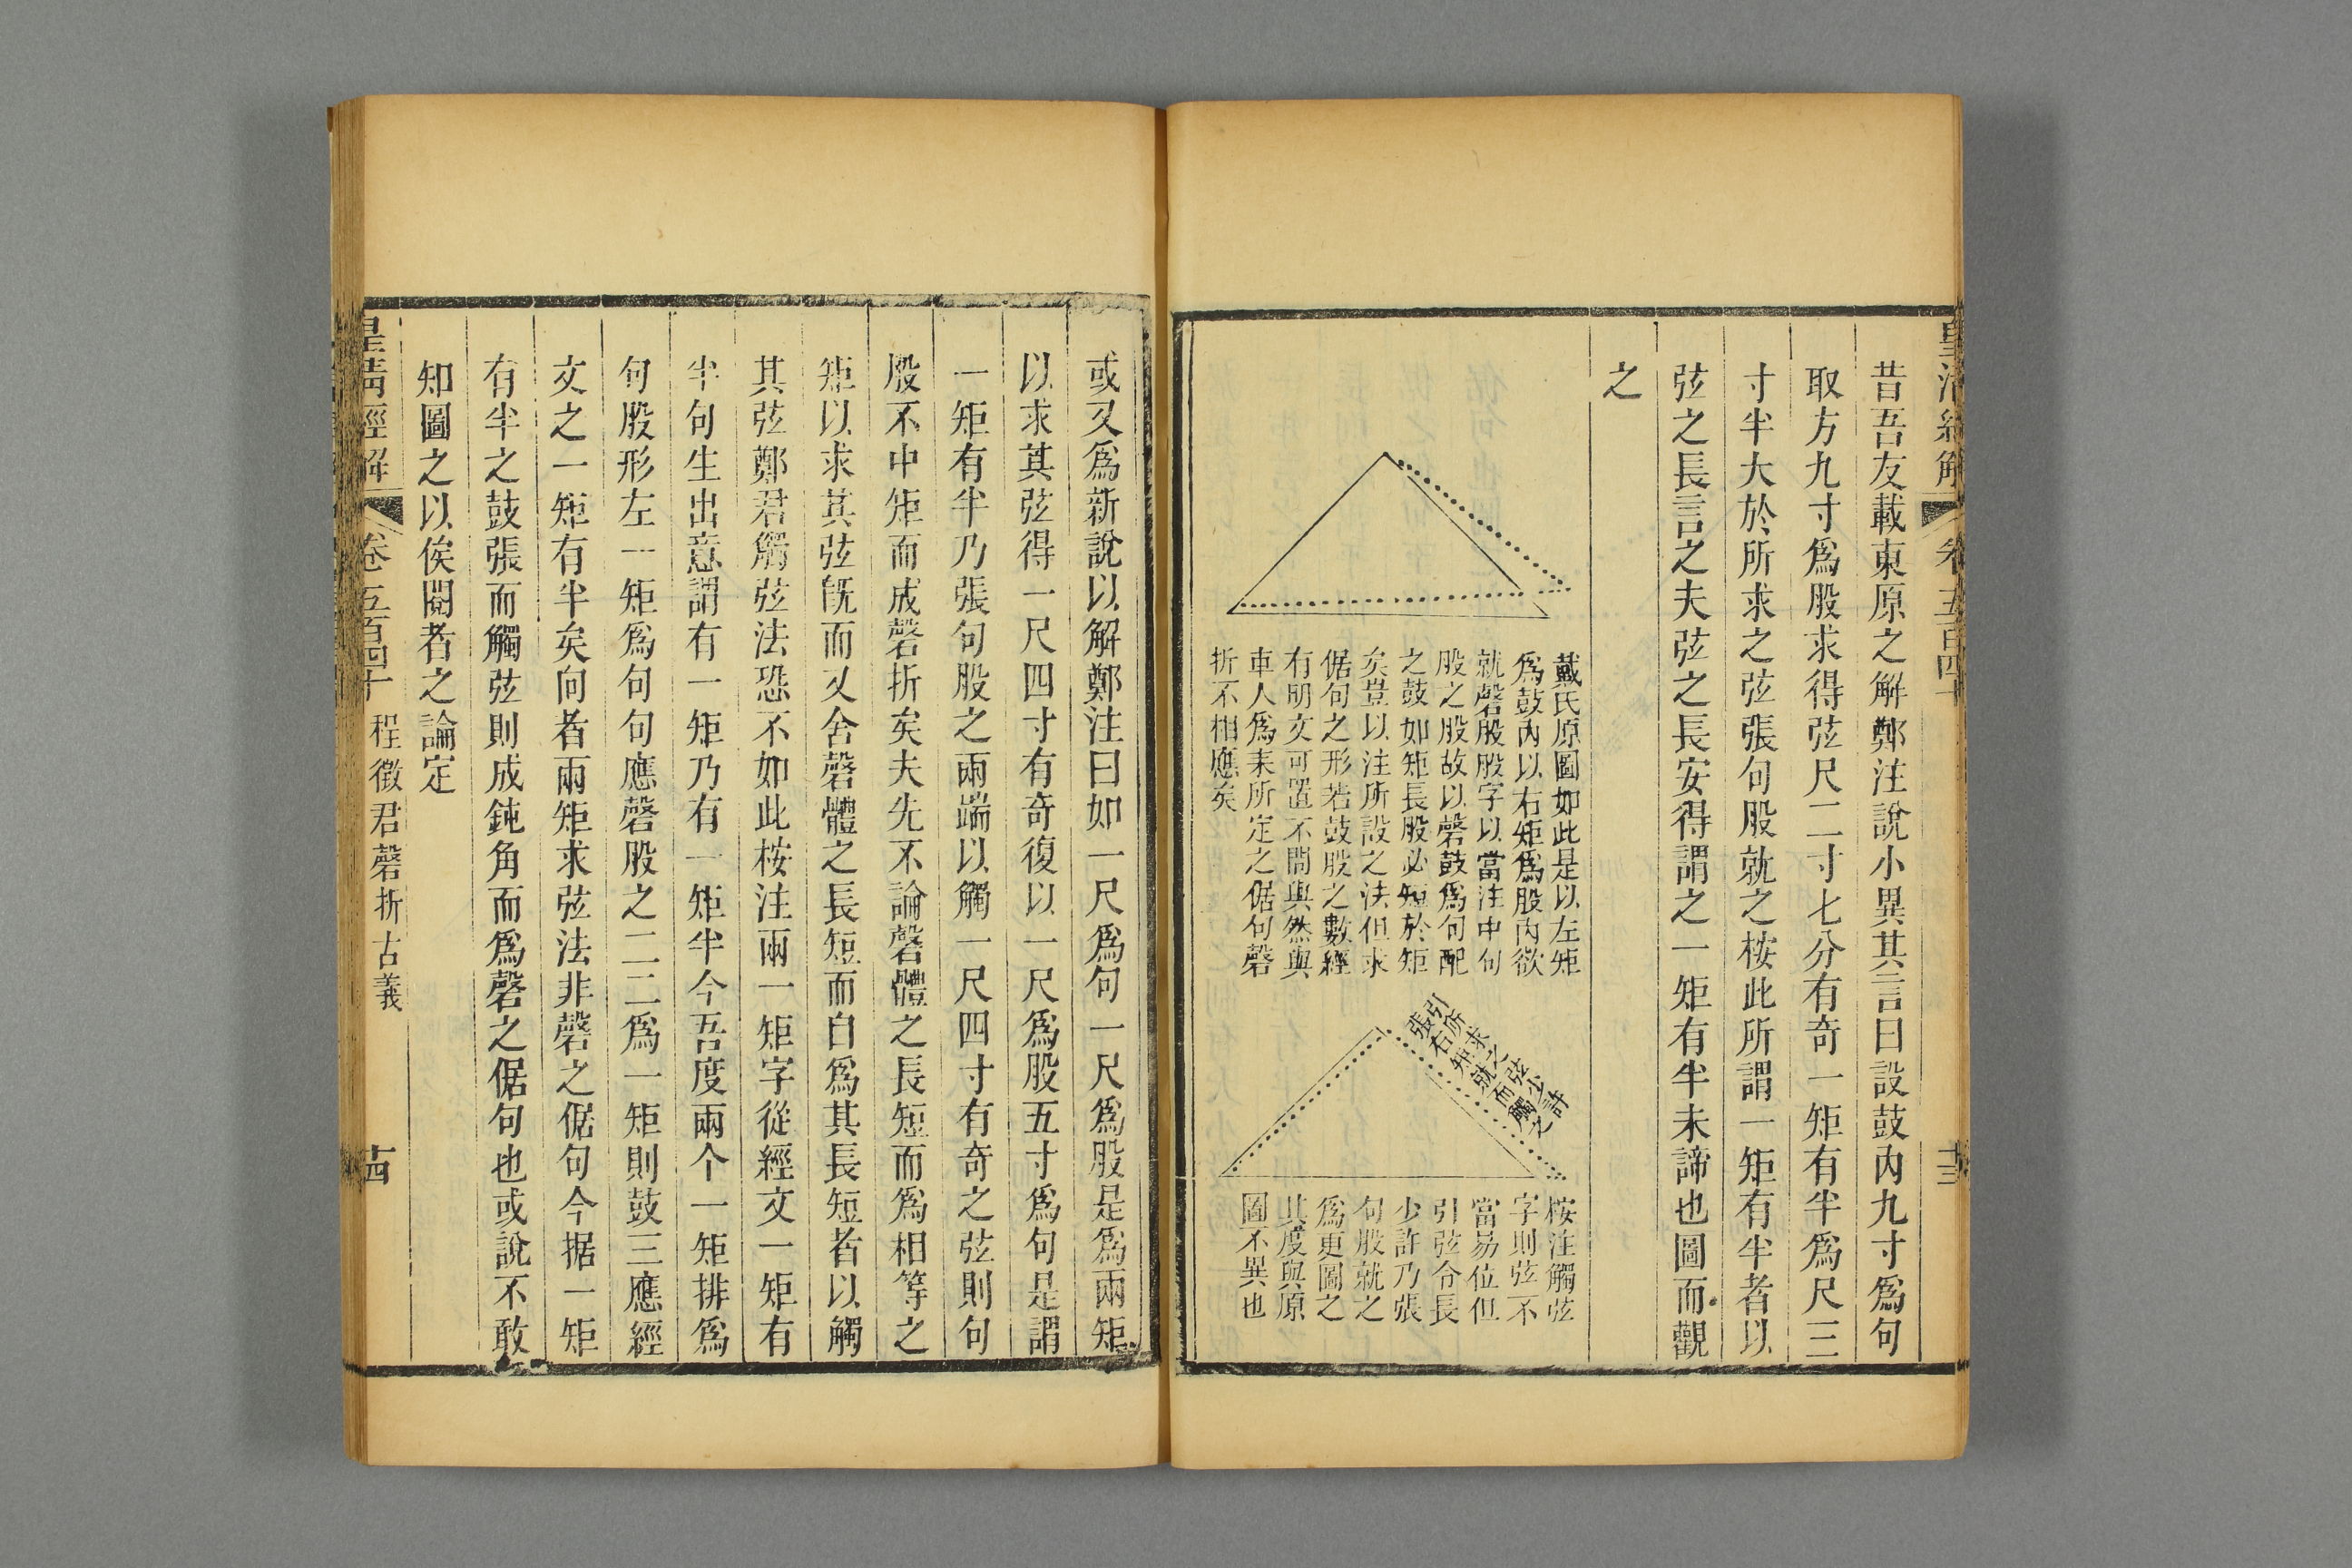 皇清經解 卷五百四十 十三
昔吾友戴東原之解鄭注說小異其言曰設鼓內九寸爲句
取方九寸爲股求得弦尺二寸七分有奇一矩有半爲尺三
寸半大於所求之弦張句股就之桉此所謂一矩有半者以
弦之長言之夫弦之長安得謂之一矩有半未諦也圖而觀
之
戴氏原圖如此是以左矩
爲鼓內以右矩爲股內欲
就磬股股字以當注中句
股之股故以磬鼓爲句配
之鼓如矩長股必短於矩
矣豈以注所設之法但求
倨句之形若鼓股之數經
有明文可置不問與然與
車人爲耒所定之倨句磬
折不相應矣
引所求之弦少許
張右矩就而觸之
桉注觸弦
字則弦不
當易位但
引弦令長
少許乃張
句股就之
爲更圖之
其度與原
圖不異也
或又爲新說以解鄭注曰如一尺爲句一尺爲股是爲兩矩
以求其弦得一尺四寸有奇復以一尺爲股五寸爲句是謂
一矩有半乃張句股之兩端以觸一尺四寸有奇之弦則句
股不中矩而成磬折矣夫先不論磬體之長短而爲相等之
矩以求其弦旣而又舍磬體之長短而自爲其長短者以觸
其弦鄭君觸弦法恐不如此桉注兩一矩字從經文一矩有
半句生出意謂有一矩乃有一矩半今吾度兩个一矩排爲
句股形左一矩爲句句應磬股之二二爲一矩則鼓三應經
文之一矩有半矣向者兩矩求弦法非磬之倨句今据一矩
有半之鼓張而觸弦則成鈍角而爲磬之倨句也或說不敢
知圖之以俟閱者之論定
皇清經解 卷五百四十 程徵君磬折古義 十四